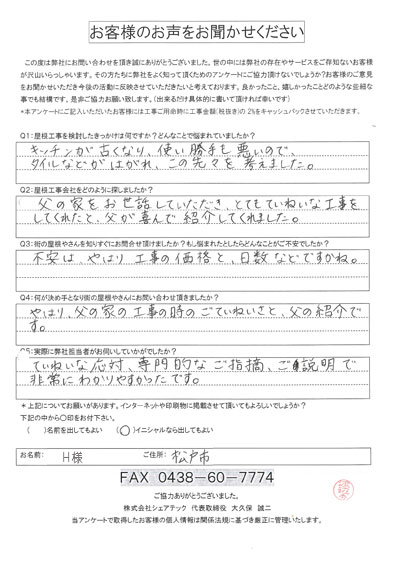 お客様のお声をお聞かせください
この度は弊社にお問い合わせを頂き誠にありがとうございました。世の中には弊社の存在やサービスをご存知ないお客様
が沢山いらっしゃいます。その方たちに弊社をよく知って頂くためのアンケートにご協力頂けないでしょうか？お客様のご意見
をお聞かせいただき今後の活動に反映させていただきたいと考えております。良かったこと、嬉しかったことどのような些細な
事でも結構です。是非ご協力お願い致します。（出来るだけ具体的に書いて頂ければ幸いです）
*本アンケートにご記入いただいたお客様には工事ご用命時に工事金額（税抜き）の2%をキャッシュバックさせていただきます。
Q1：屋根工事を検討したきっかけは何ですか？どんなことで悩まれていましたか？
キッチンが古くなり、使い勝手も悪いので、
タイルなどがはがれ、この先々を考えました。
Q2：屋根工事会社をどのように探しましたか？
父の家をお世話していただき、とてもていねいな工事を
してくれたと、父が喜んで紹介してくれました。
Q3：街の屋根やさんを知りすぐにお問合せ頂けましたか？もし悩まれたとしたらどんなことがご不安でしたか？
不安は、やはり工事の価格と、日数などですかね。
Q4：何が決め手となり街の屋根やさんにお問い合わせ頂きましたか？
やはり、父の家の工事の時のごていねいさと、父の紹介で
す。
Q5：実際に弊社担当者がお伺いしていかがでしたか？
ていねいな応対、専門的なご指摘、ご説明で
非常にわかりやすかったです。
*上記についてお願いがあります。インターネットや印刷物に掲載させて頂いてもよろしいでしょうか？
下記の中から〇印をお付下さい。
（　）名前を出してもよい　（〇）イニシャルなら出してもよい
お名前：　H様　ご住所：　松戸市
FAX 0438-60-7774
ご協力ありがとうございました。
株式会社シェアテック 代表取締役 大久保 誠二
当アンケートで取得したお客様の個人情報は関係法規に基づき厳正に管理いたします。